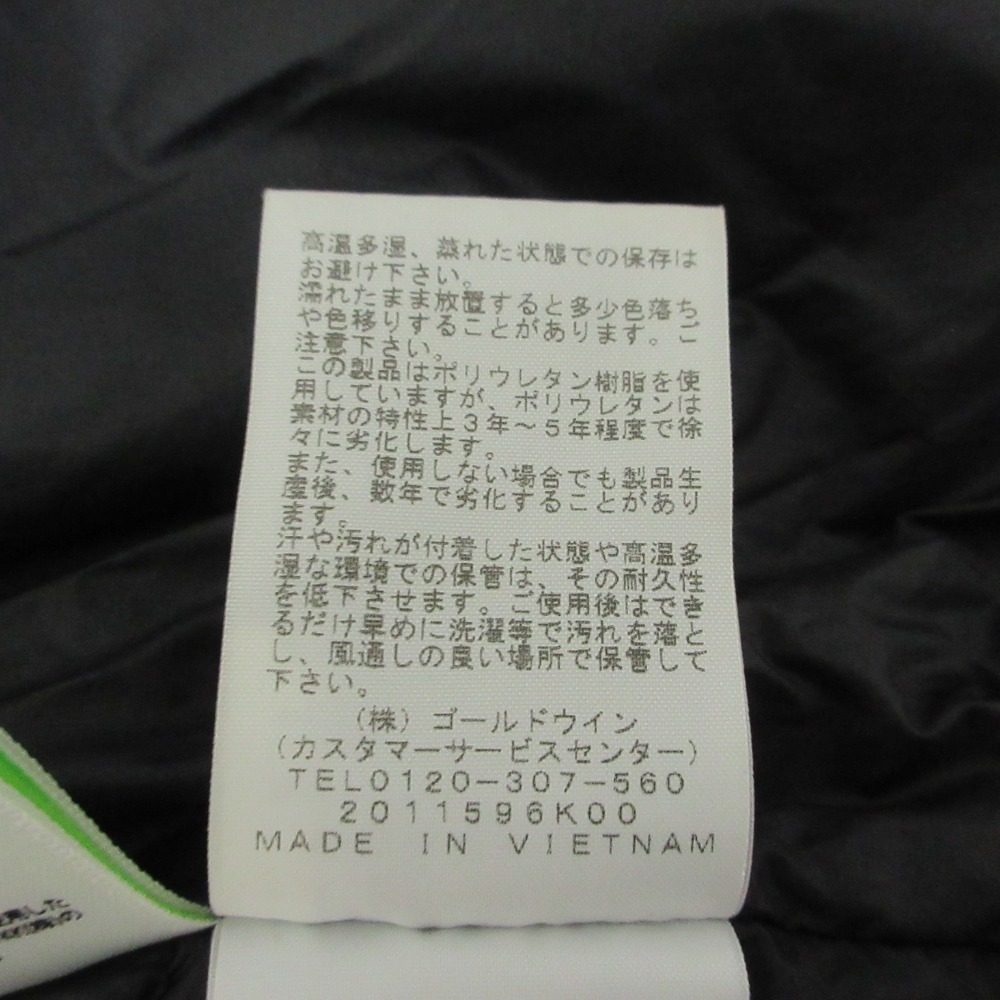 高温多湿、蒸れた状態での保存は
お避け下さい。
濡れたまま放置すると多少色落ち
や色移りすることがあります。ご
注意下さい。
この製品はポリウレタン樹脂を使
用していますが、ポリウレタンは
素材の特性上3年～5年程度で徐
々に劣化します。
また、使用しない場合でも製品生
産後、数年で劣化することがあり
ます。
汗や汚れが付着した状態や高温多
湿な環境での保管は、その耐久性
を低下させます。ご使用後はでき
るだけ早めに洗濯等で汚れを落と
し、風通しの良い場所で保管して
下さい。
(株)ゴールドウイン
(カスタマーサービスセンター)
TEL0120-307-560
2011596K00
MADE IN VIETNAM